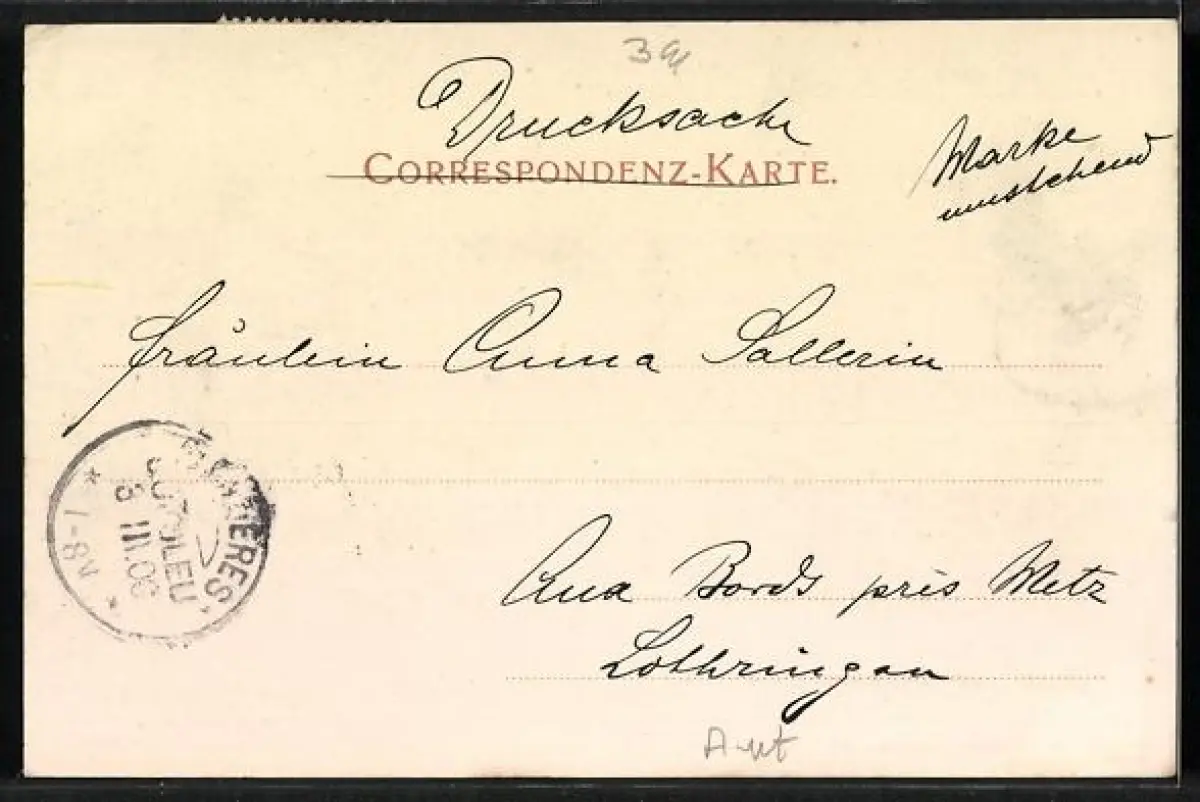 Drucksache
CORRESPONDENZ-KARTE.
Marke
umstehend
Fräulein Anna Sallerin
Aux Bords près Metz
Lothringen
8 III.06
7-8N